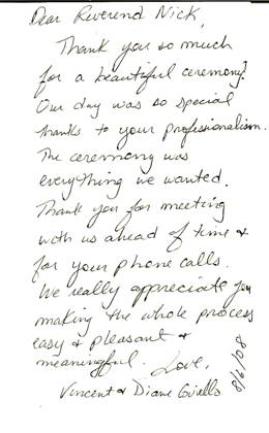 Dear Reverend Nick,
Thank you so much
for a beautiful ceremony!
Our day was so special
thanks to your professionalism.
The ceremony was
everything we wanted.
Thank you for meeting
with us ahead of time &
for your phone calls.
We really appreciate you
making the whole process
easy & pleasant &
meaningful. Love,
Vincent & Diane
8/6/08